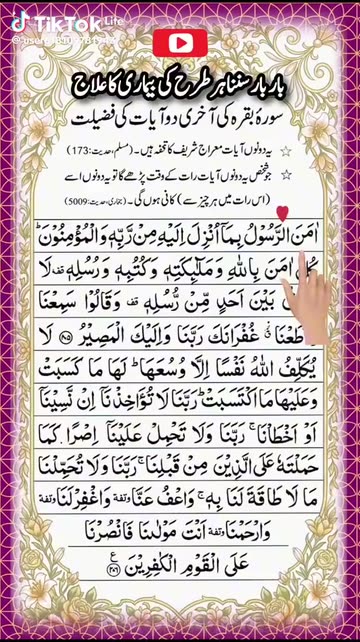 TikTok Lite
بار بار سننا ہر طرح کی بیماری کا علاج
سورۂ بقرہ کی آخری دو آیات کی فضیلت
یہ دونوں آیات معراج شریف کا تحفہ ہیں۔ (مسلم، حدیث: 173)
جو شخص یہ دونوں آیات رات کے وقت پڑھے گا تو یہ دونوں اسے
(اس رات میں ہر چیز سے) کافی ہوں گی۔ (بخاری، حدیث: 5009)
اٰمَنَ الرَّسُوْلُ بِمَاۤ اُنْزِلَ اِلَیْهِ مِنْ رَّبِّهٖ وَالْمُؤْمِنُوْنَ ؕ
كُلٌّ اٰمَنَ بِاللّٰهِ وَمَلٰٓئِكَتِهٖ وَكُتُبِهٖ وَرُسُلِهٖ قف لَا
بَیْنَ اَحَدٍ مِّنْ رُّسُلِهٖ قف وَقَالُوْا سَمِعْنَا
وَاَطَعْنَا ٭ۗ غُفْرَانَكَ رَبَّنَا وَاِلَیْكَ الْمَصِیْرُ ﴿۲۸۵﴾ لَا
یُكَلِّفُ اللّٰهُ نَفْسًا اِلَّا وُسْعَهَا ؕ لَهَا مَا كَسَبَتْ
وَعَلَیْهَا مَا اكْتَسَبَتْ ؕ رَبَّنَا لَا تُؤَاخِذْنَاۤ اِنْ نَّسِیْنَاۤ
اَوْ اَخْطَاْنَا ۚ رَبَّنَا وَلَا تَحْمِلْ عَلَیْنَاۤ اِصْرًا كَمَا
حَمَلْتَهٗ عَلَی الَّذِیْنَ مِنْ قَبْلِنَا ۚ رَبَّنَا وَلَا تُحَمِّلْنَا
مَا لَا طَاقَةَ لَنَا بِهٖ ۚ وَاعْفُ عَنَّا وقفة وَاغْفِرْ لَنَا وقفة
وَارْحَمْنَا وقفة اَنْتَ مَوْلٰىنَا فَانْصُرْنَا
عَلَی الْقَوْمِ الْكٰفِرِیْنَ ﴿۲۸۶﴾ ع